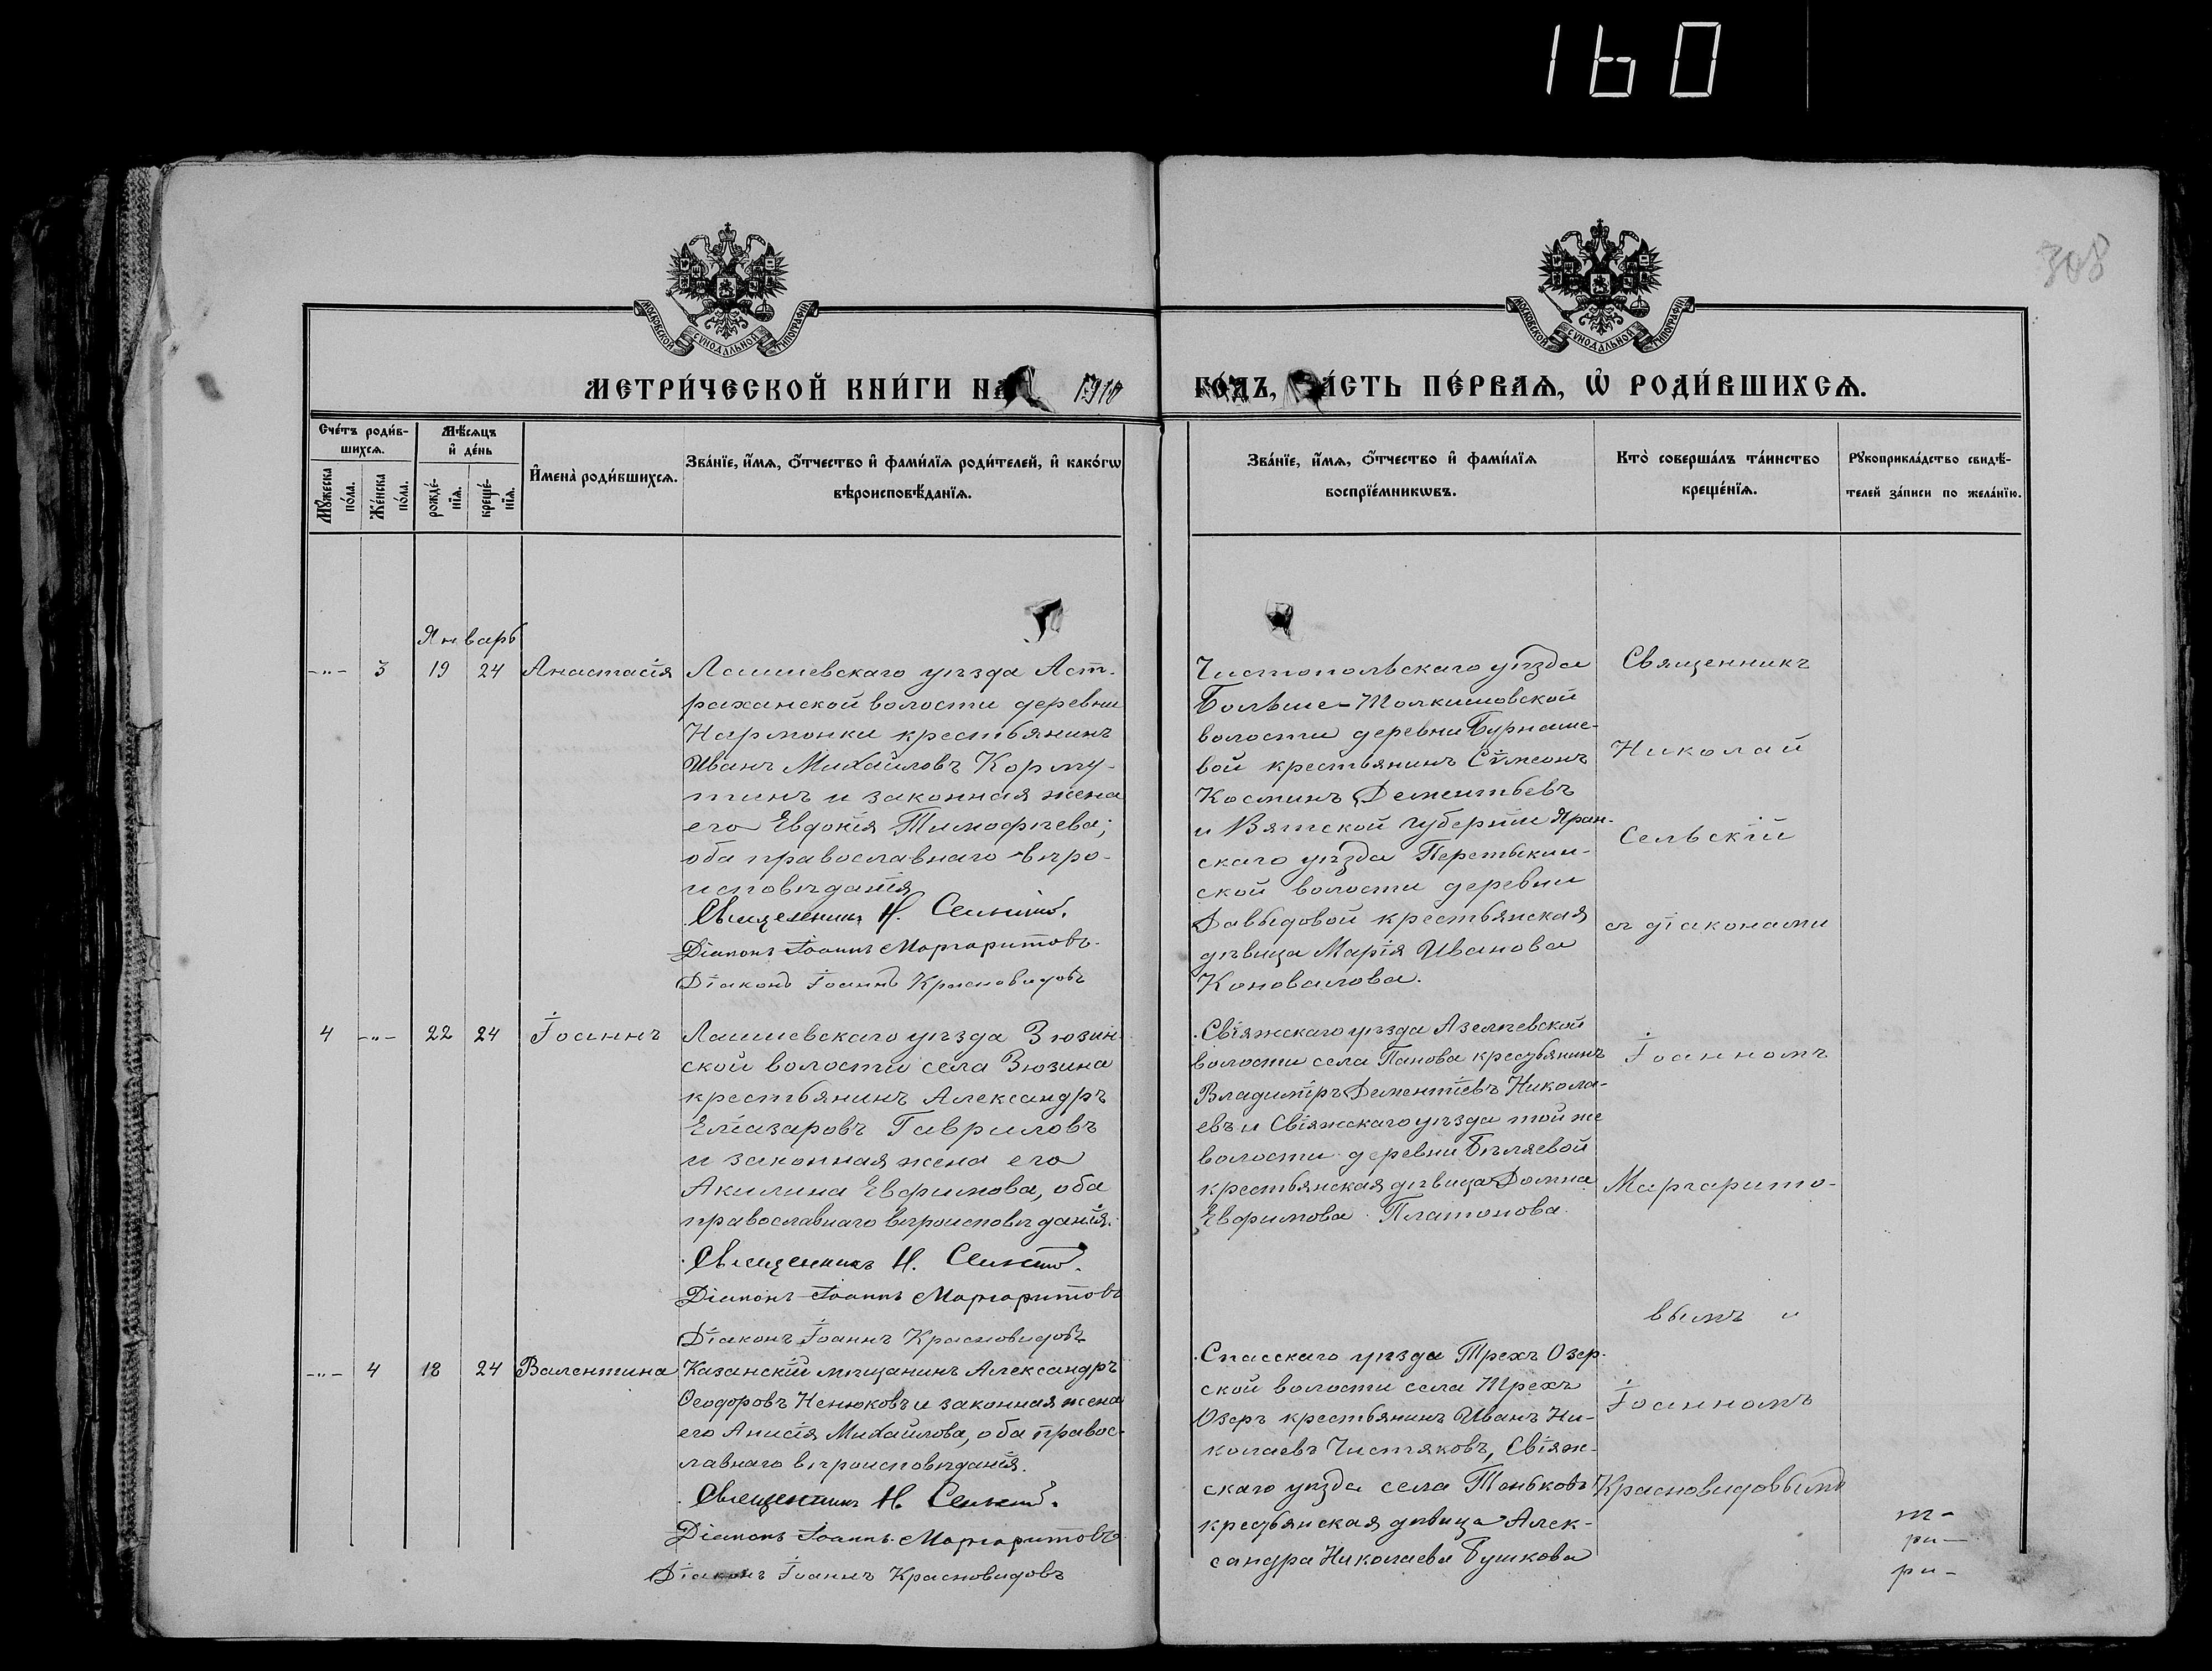 160
308
МОСКОВСКОЙ СѴНОДАЛЬНОЙ ТИПОГРАФІИ
МОСКОВСКОЙ СѴНОДАЛЬНОЙ ТИПОГРАФІИ
МЕТРИ́ЧЕСКОЙ КНИ́ГИ НА 1910
ГО́ДЪ, ЧА́СТЬ ПЕ́РВАѦ, Ѡ҆ РОДИ́ВШИХСѦ.
Сче́тъ роди́в-
шихсѧ.
Мꙋ́жеска по́ла.
Же́нска по́ла.
Мѣ́сѧцъ
и҆ де́нь
рожде́нїѧ.
креще́нїѧ.
И҆мена̀ роди́вшихсѧ.
Зва́нїе, и҆́мѧ, ѻ҆́тчество и҆ фами́лїѧ роди́телей, и҆ како́гѡ
вѣроисповѣ́данїѧ.
Зва́нїе, и҆́мѧ, ѻ҆́тчество и҆ фами́лїѧ
воспрїе́мникѡвъ.
Кто̀ соверша́лъ та́инство
креще́нїѧ.
Рꙋкоприкла́дство свидѣ́-
телей за́писи по жела́нїю.
Январь
-"- 3 19 24 Анастасія
Лаишевскаго уѣзда Аст-
раханской волости деревни
Нармонки крестьянинъ
Иванъ Михайловъ Корму-
тинъ и законная жена
его Евдокія Тимофѣева;
оба православнаго вѣро-
исповѣданія
Священникъ Н. Сельскій.
Діаконъ Іоаннъ Маргаритовъ.
Діаконъ Іоаннъ Красновидовъ
Чистопольскаго уѣзда
Больше-Толкишовской
волости деревни Бурнаше-
вой крестьянинъ Сѵмеонъ
Косминъ Дементьевъ
и Вятской губерніи Яран-
скаго уѣзда
ской волости деревни
Давыдовой крестьянская
дѣвица Марія Иванова
Коновалова.
Священникъ
Николай
Сельскій
съ діаконами
4 -"- 22 24 Іоаннъ
Лаишевскаго уѣзда Зюзин-
ской волости села Зюзина
крестьянинъ Александръ
Еліазаровъ Гавриловъ
и законная жена его
Акилина Евфимова, оба
православнаго вѣроисповѣданія.
Священникъ Н. Сельскій.
Діаконъ Іоаннъ Маргаритовъ
Діаконъ Іоаннъ Красновидовъ
Свіяжскаго уѣзда Азелеевской
волости села Панова крестьянинъ
Владиміръ Дементіевъ Никола-
евъ и Свіяжскаго уѣзда той же
волости деревни Бѣляевой
крестьянская дѣвица Домна
Евфимова Платонова.
Іоанномъ
Маргарито-
вымъ и
-"- 4 18 24 Валентина
Казанскій мѣщанинъ Александръ
Ѳеодоровъ Ненюковъ и законная жена
его Анисія Михайлова, оба правос-
лавнаго вѣроисповѣданія.
Священникъ Н. Сельскій.
Діаконъ Іоаннъ Маргаритовъ
Діаконъ Іоаннъ Красновидовъ
Спасскаго уѣзда Трехъ Озер-
ской волости села Трехъ
Озеръ крестьянинъ Иванъ Ни-
колаевъ Чистяковъ, Свіяж-
скаго уѣзда села Теньковъ
крестьянская дѣвица Алек-
сандра Николаева Бушкова
Іоанномъ
Красновидовымъ
т-
ри-
ри-